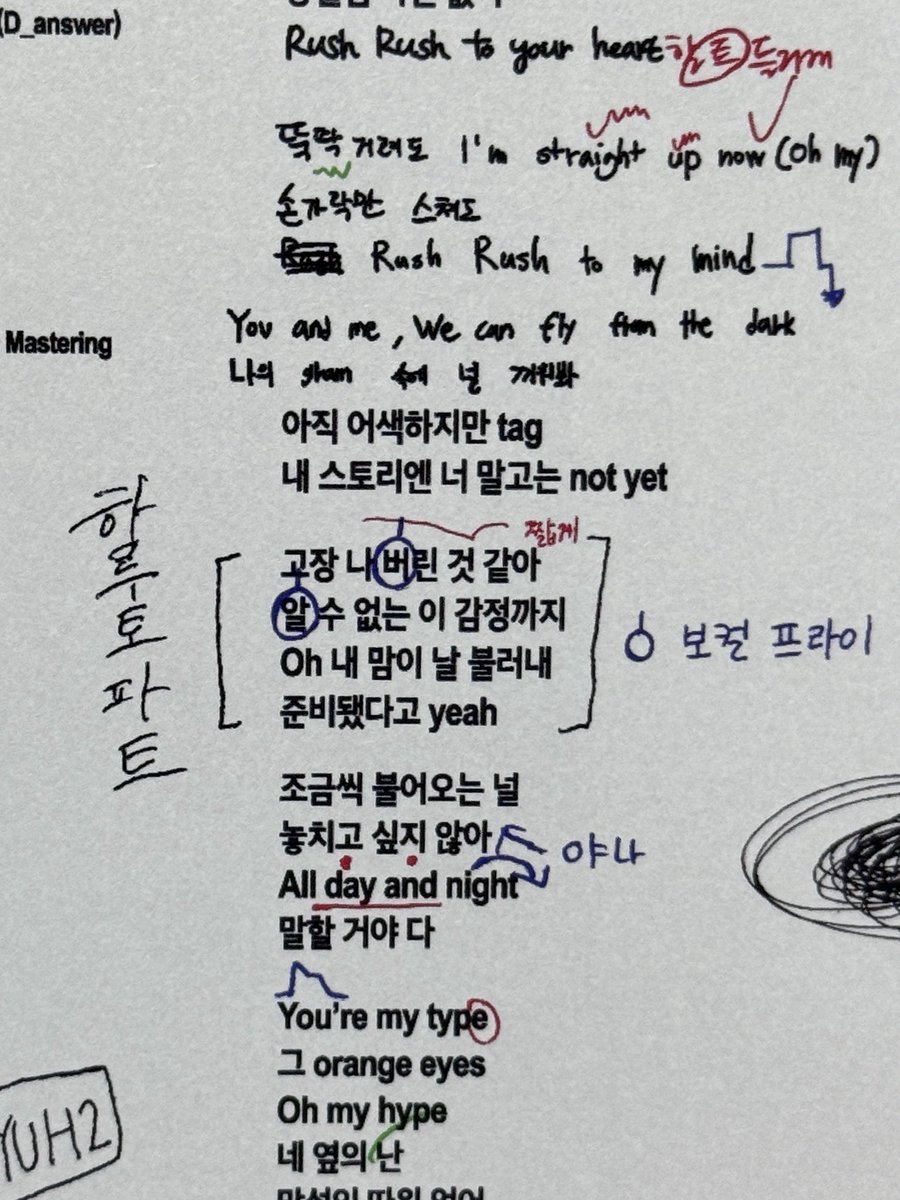 (D_answer)
Rush Rush to your heart 하트 드리며
뚝딱 거려도 I'm straight up now (Oh my)
손가락만 스쳐도
Rush Rush to my mind
Mastering
You and me, We can fly from the dark
나의 gram 속에 널 끼워봐
아직 어색하지만 tag
내 스토리엔 너 말고는 not yet
짧게
하루토파트
고장 나 버린 것 같아
알 수 없는 이 감정까지
Oh 내 맘이 날 불러내
준비됐다고 yeah
보컬 프라이
조금씩 불어오는 널
놓치고 싶지 않아
야나
All day and night
말할 거야 다
You're my type
그 orange eyes
Oh my hype
네 옆의 난
YUH2